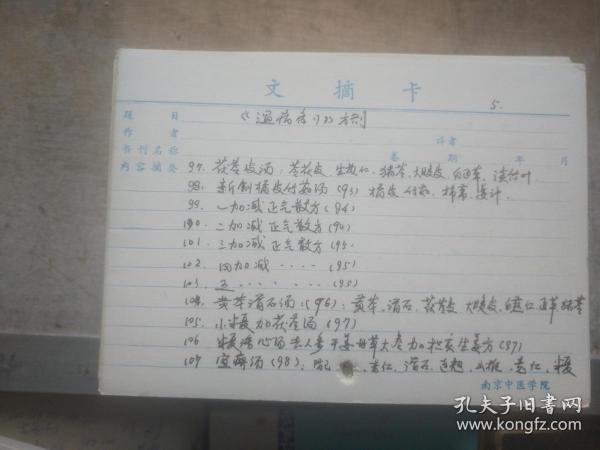 文摘卡
5.
题 目 《温病条》方剂
作 者 译者
书刊名称 卷 期 年 月
内容摘要 97. 茯苓皮汤:茯苓皮,生苡仁,猪苓,大腹皮,白通草,淡竹叶
98. 新制橘皮竹茹汤(93) 橘皮,竹茹,柿蒂,姜汁.
99. 一加减正气散方(94)
100. 二加减正气散方(94)
101. 三加减正气散方(95)
102. 四加减 ‥‥(95)
103. 五 ‥‥(95)
104. 黄芩滑石汤:(96):黄芩,滑石,茯苓皮,大腹皮,白蔻仁,通草,猪苓
105. 小半夏加茯苓汤(97)
106 半夏泻心汤去人参干姜甘草大枣加枳实生姜方(97)
107 宣痹汤(98),防己,杏仁,滑石,连翘,山栀,苡仁,半夏
南京中医学院
孔夫子旧书网
www.kongfz.com